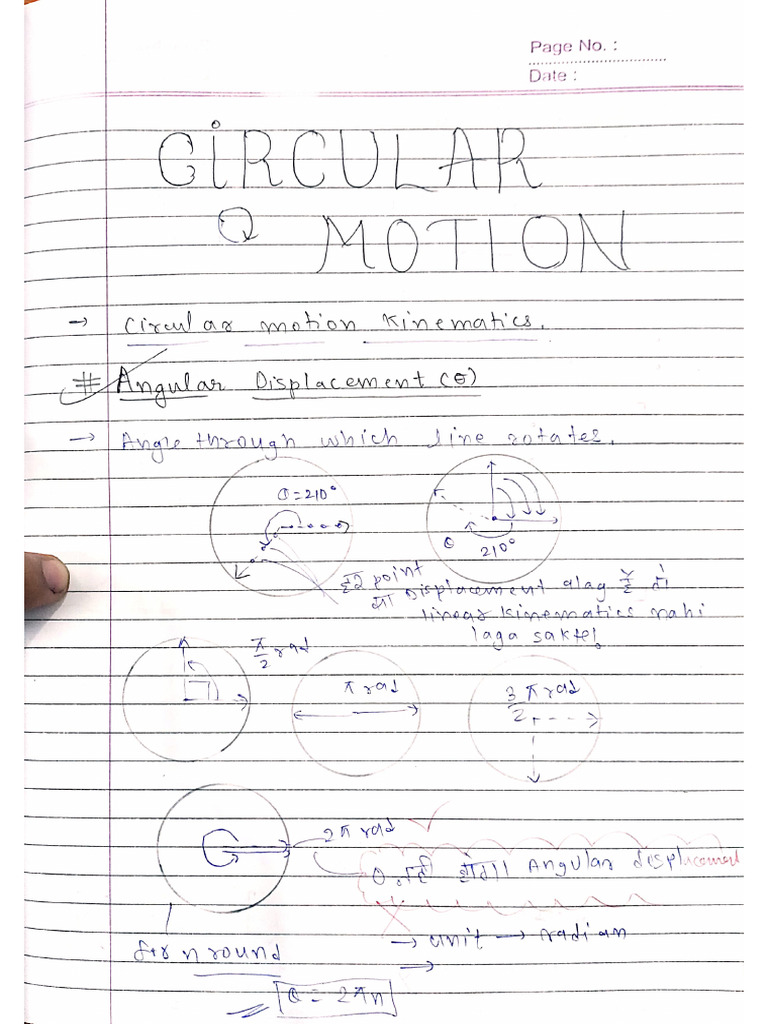 Page No. :
Date :
CIRCULAR
MOTION
→ Circular motion Kinematics.
# Angular Displacement (θ)
→ Angle through which line rotates.
θ = 210°
θ 210°
हर point
का Displacement alag है तो
linear kinematics nahi
laga sakte!
π/2 rad
π rad
3/2 π rad
2π rad
0 नहीं होगा Angular displacement
→ unit → radian
→
for n round
θ = 2πn